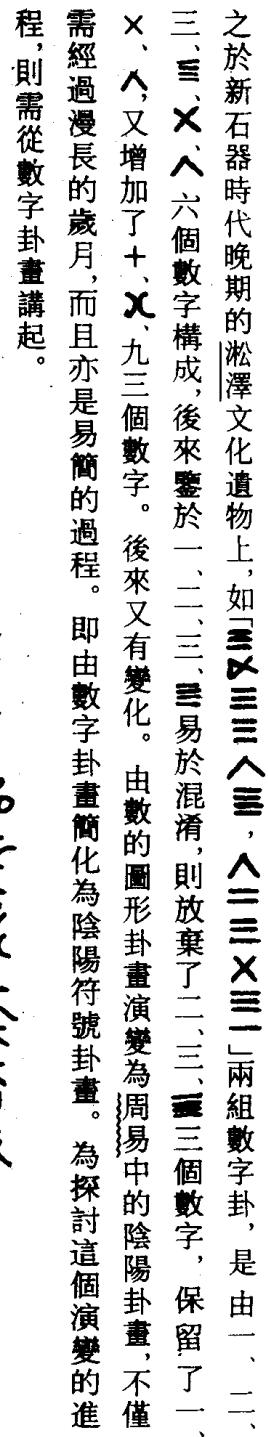 之於新石器時代晚期的淞澤文化遺物上，如「𝌆三三∧，∧二三✕一」兩組數字卦，是由一、二、
三、亖、✕、∧六個數字構成，後來鑒於一、二、三、亖易於混淆，則放棄了二、三、亖三個數字，保留了一、
✕、∧，又增加了十、八、九三個數字。後來又有變化。由數的圖形卦畫演變為周易中的陰陽卦畫，不僅
需經過漫長的歲月，而且亦是易簡的過程。即由數字卦畫簡化為陰陽符號卦畫。為探討這個演變的進
程，則需從數字卦畫講起。